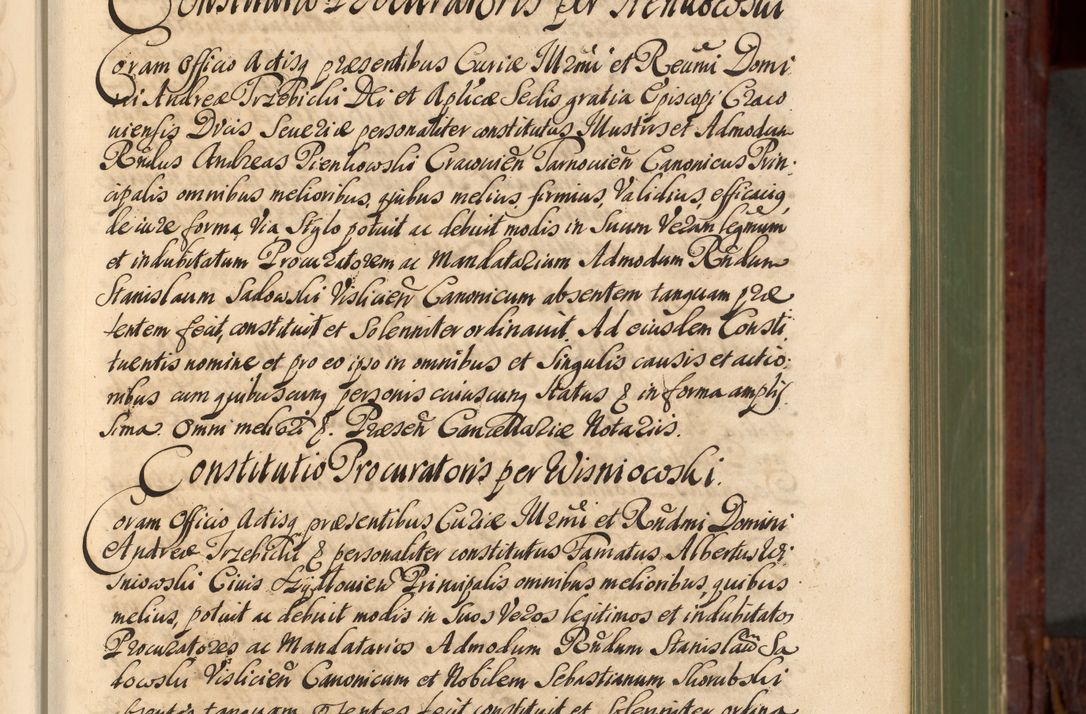 Constitutio Procuratoris per Pienkowski
Coram Officio Actisq præsentibus Curiæ Illrmi et Reumi Domi
ni Andreæ Trzebicki Dei et Aplicæ Sedis gratia Episcopi Craco
uiensis Ducis Seueriæ personaliter constitutus Illustris et Admodum
Rndus Andreas Pienkowski Cracouien Tarnouien Canonicus Prin
cipalis omnibus melioribus, quibus melius, firmius, Validius, efficaciq
de iure forma, Via Stylo potuit ac debuit modis in Suum Verum legmum
et indubitatum Procuratorem ac Mandatarium Admodum Rndum
Stanislaum Sadowski Vislicien Canonicum absentem tanquam præ
sentem fecit, constituit et Solenniter ordinauit. Ad eiusdem Consti
tuentis nomine et pro eo ipso in omnibus et Singulis causis et actio
nibus cum quibuscunq personis cuiuscunq Status & in forma amplis
sima. Omni meliori &. Præsen Cancellariæ Notariis.
Constitutio Procuratoris per Wisniocoski.
Coram Officio Actisq præsentibus Curiæ Illrmi et Rndmi Domini
Andreæ Trzebicki & personaliter constitutus Famatus Albertus Wi
sniowski Ciuis Principalis omnibus melioribus, quibus
melius, potuit ac debuit modis in Suos Veros legitimos et indubitatos
Procuratores ac Mandatarios Admodum Rndum Stanislaum Sa
dowski Vislicien Canonicum et Nobilem Sebastianum Skorubski
absentes tanquam præsentes fecit constituit et Solenniter ordina